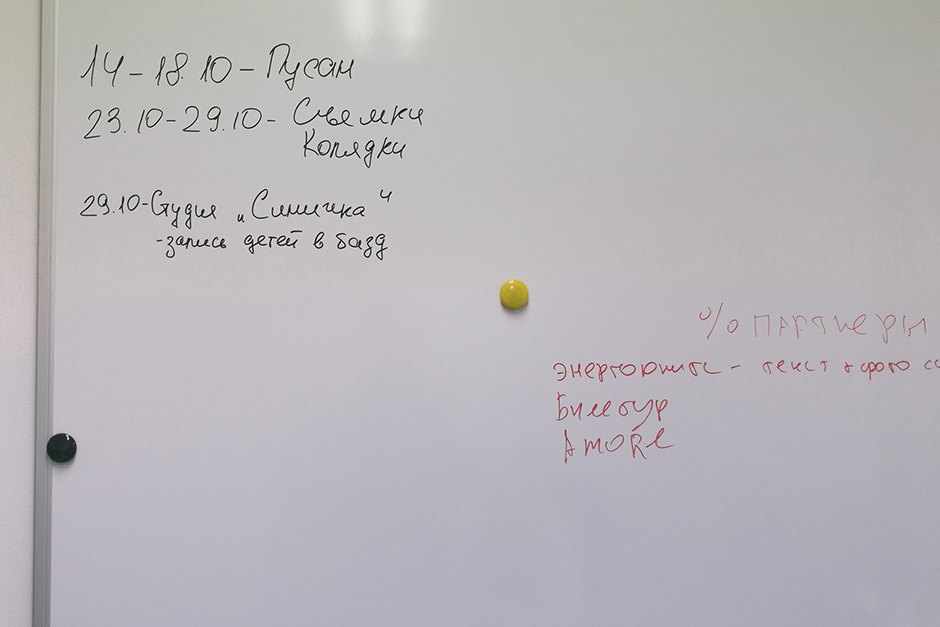 14-18.10-Пусан
23.10-29.10- Съемки
Колядки
29.10-Студия „Синичка"
-запись детей в базд
% ПАРТНЕРЫ
- текст + фото
Билетур
AmoRe